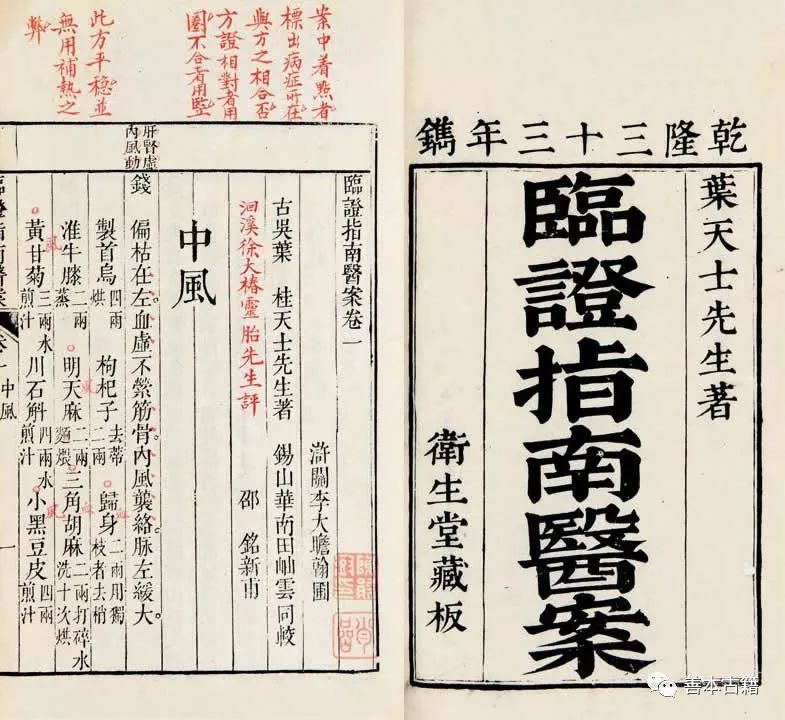 乾隆三十三年鐫
葉天士先生著
臨證指南醫案
衛生堂藏板
案中着點者
標出病症所在
與方之相合否
方證相對者用
圏不合者用竪
此方平穩並
無用補熱之
弊
臨證指南醫案卷一
滸關李大瞻翰圃
古吳葉 桂天士先生著 錫山華南田岫雲同較
洄溪徐大椿靈胎先生評 邵 銘新甫
中風
肝腎虛
內風動
錢 偏枯在左。血虛不縈筋骨。內風襲絡。脉左緩大。
製首烏四兩烘 枸杞子去蒂二兩 歸身二兩用獨枝者去梢
淮牛膝二兩蒸 明天麻二兩麵煨 三角胡麻二兩打碎水洗十次烘
黃甘菊三兩水煎汁 川石斛四兩水煎汁 小黑豆皮四兩煎汁
臨證指南醫案 卷一 中風 一
善本古籍